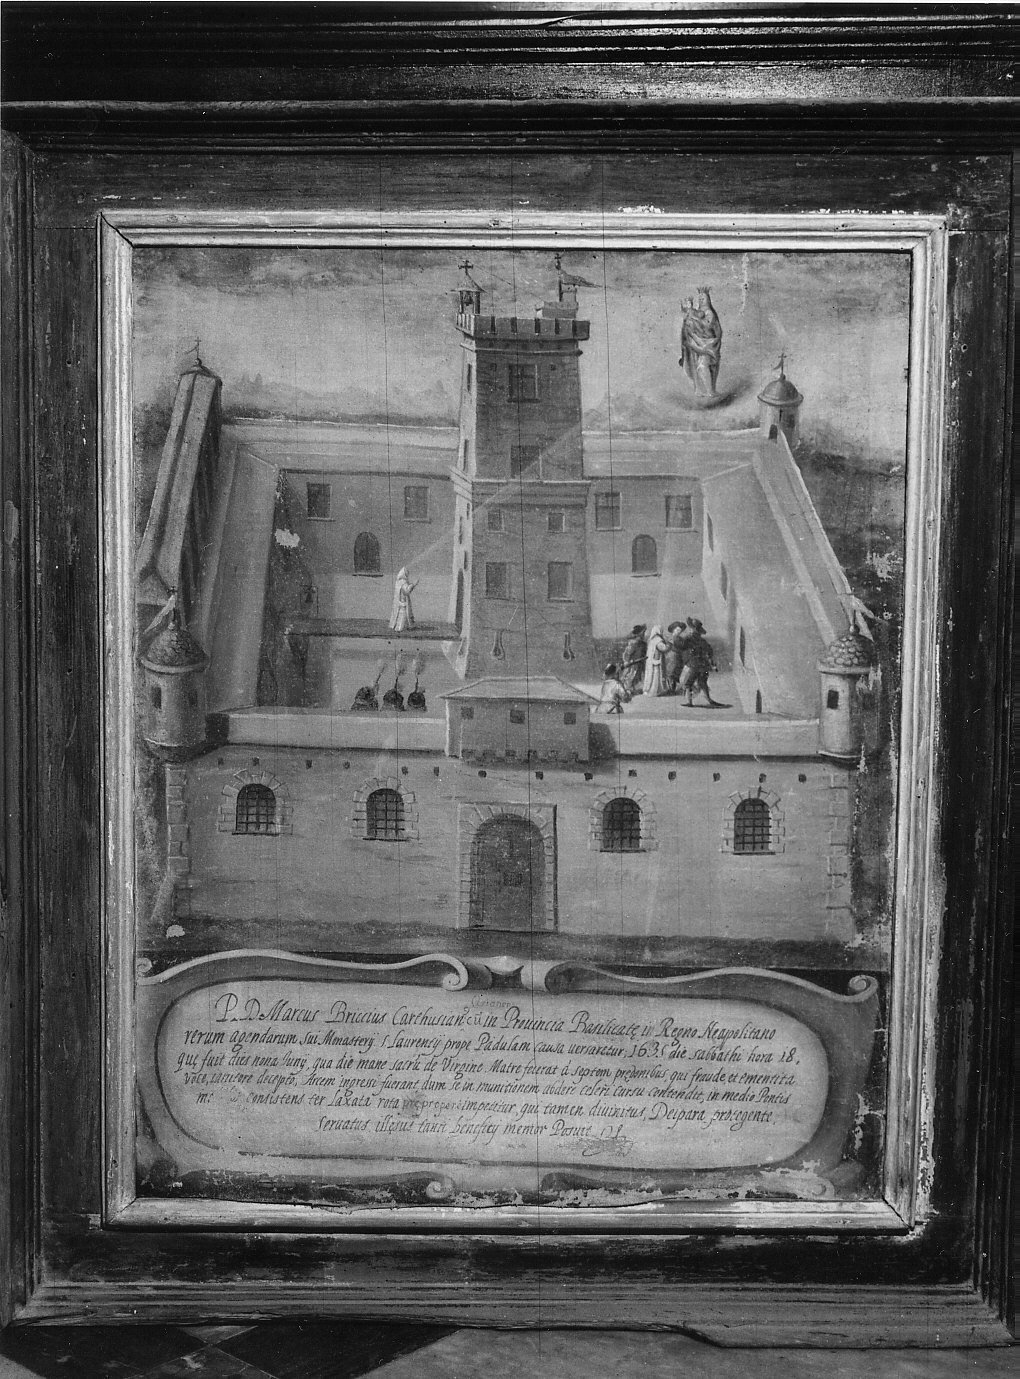 P. D Marcus Briccius Carthusianꝰ cū in Provincia Basilicatę in Regno Neapolitano
rerum agendarum sui Monastery S Laurenty prope Padulam causa versaretur, 163 die sabbathi hora 18.
quę fuit dies nona Juny, qua die mane sacrū de Virgine Matre fecerat à septem prędonibus, qui fraude, et ementita
voce, ianitore decepto, Arcem ingresi fuerant dum se in munitionem abdere celeri cursu contendit, in medio Pontis
consistens ter laxata rota impetitur, qui tamen diuinitus, Deipara protegente,
seruatus, illesus tanti benefity memor Posuit